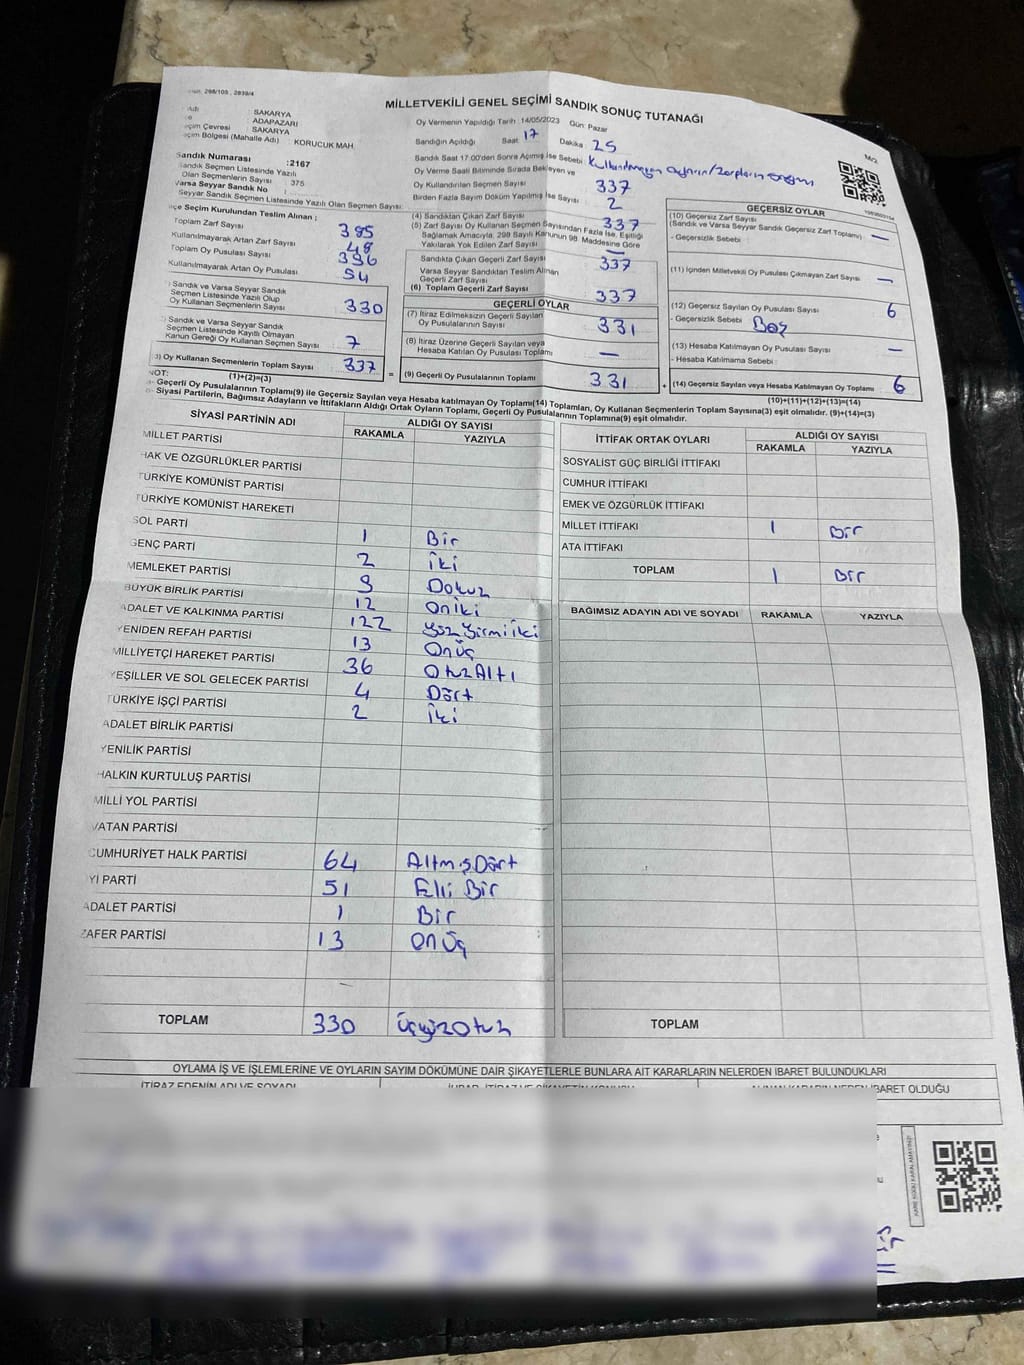 298/105 , 2839/4
MİLLETVEKİLİ GENEL SEÇİMİ SANDIK SONUÇ TUTANAĞI
: SAKARYA
: ADAPAZARI
eçim Çevresi : SAKARYA
eçim Bölgesi (Mahalle Adı) : KORUCUK MAH.
Sandık Numarası : 2167
Sandık Seçmen Listesinde Yazılı
Olan Seçmenlerin Sayısı : 375
Varsa Seyyar Sandık No :
Seyyar Sandık Seçmen Listesinde Yazılı Olan Seçmen Sayısı:
Oy Vermenin Yapıldığı Tarih : 14/05/2023 Gün: Pazar
Sandığın Açıldığı Saat 17 Dakika : 25
Sandık Saat 17:00'den Sonra Açılmış İse Sebebi : Kullanılmayan Oyların/Zarfların Sayımı
Oy Verme Saati Bitiminde Sırada Bekleyen ve
Oy Kullandırılan Seçmen Sayısı 337
Birden Fazla Sayım Döküm Yapılmış İse Sayısı : 2
lçe Seçim Kurulundan Teslim Alınan ;
Toplam Zarf Sayısı 385
Kullanılmayarak Artan Zarf Sayısı 48
Toplam Oy Pusulası Sayısı 396
Kullanılmayarak Artan Oy Pusulası 54
) Sandık ve Varsa Seyyar Sandık
Seçmen Listesinde Yazılı Olup
Oy Kullanan Seçmenlerin Sayısı 330
) Sandık ve Varsa Seyyar Sandık
Seçmen Listesinde Kayıtlı Olmayan
Kanun Gereği Oy Kullanan Seçmen Sayısı 7
3) Oy Kullanan Seçmenlerin Toplam Sayısı 337
(1)+(2)=(3)
(4) Sandıktan Çıkan Zarf Sayısı 337
(5) Zarf Sayısı Oy Kullanan Seçmen Sayısından Fazla İse, Eşitliği
Sağlamak Amacıyla, 298 Sayılı Kanunun 98. Maddesine Göre
Yakılarak Yok Edilen Zarf Sayısı —
Sandıkta Çıkan Geçerli Zarf Sayısı 337
Varsa Seyyar Sandıktan Teslim Alınan
Geçerli Zarf Sayısı
(6) Toplam Geçerli Zarf Sayısı 337
GEÇERLİ OYLAR
(7) İtiraz Edilmeksizin Geçerli Sayılan
Oy Pusulalarının Sayısı 331
(8) İtiraz Üzerine Geçerli Sayılan veya
Hesaba Katılan Oy Pusulası Toplamı —
= (9) Geçerli Oy Pusulalarının Toplamı 331
GEÇERSİZ OYLAR
(10) Geçersiz Zarf Sayısı
(Sandık ve Varsa Seyyar Sandık Geçersiz Zarf Toplamı) —
- Geçersizlik Sebebi :
(11) İçinden Milletvekili Oy Pusulası Çıkmayan Zarf Sayısı —
(12) Geçersiz Sayılan Oy Pusulası Sayısı 6
- Geçersizlik Sebebi : Boş
(13) Hesaba Katılmayan Oy Pusulası Sayısı —
- Hesaba Katılmama Sebebi :
+ (14) Geçersiz Sayılan veya Hesaba Katılmayan Oy Toplamı 6
(10)+(11)+(12)+(13)=(14)
NOT:
- Geçerli Oy Pusulalarının Toplamı(9) ile Geçersiz Sayılan veya Hesaba Katılmayan Oy Toplamı(14) Toplamları, Oy Kullanan Seçmenlerin Toplam Sayısına(3) eşit olmalıdır. (9)+(14)=(3)
- Siyasi Partilerin, Bağımsız Adayların ve İttifakların Aldığı Ortak Oyların Toplamı, Geçerli Oy Pusulalarının Toplamına(9) eşit olmalıdır.
SİYASİ PARTİNİN ADI ALDIĞI OY SAYISI
RAKAMLA YAZIYLA
MİLLET PARTİSİ
HAK VE ÖZGÜRLÜKLER PARTİSİ
TÜRKİYE KOMÜNİST PARTİSİ
TÜRKİYE KOMÜNİST HAREKETİ
SOL PARTİ 1 Bir
GENÇ PARTİ 2 İki
MEMLEKET PARTİSİ 9 Dokuz
BÜYÜK BİRLİK PARTİSİ 12 Oniki
ADALET VE KALKINMA PARTİSİ 122 Yüz Yirmi İki
YENİDEN REFAH PARTİSİ 13 Onüç
MİLLİYETÇİ HAREKET PARTİSİ 36 Otuz Altı
YEŞİLLER VE SOL GELECEK PARTİSİ 4 Dört
TÜRKİYE İŞÇİ PARTİSİ 2 İki
ADALET BİRLİK PARTİSİ
YENİLİK PARTİSİ
HALKIN KURTULUŞ PARTİSİ
MİLLİ YOL PARTİSİ
VATAN PARTİSİ
CUMHURİYET HALK PARTİSİ 64 Altmış Dört
YI PARTİ 51 Elli Bir
ADALET PARTİSİ 1 Bir
ZAFER PARTİSİ 13 Onüç
TOPLAM 330 Üçyüz Otuz
İTTİFAK ORTAK OYLARI ALDIĞI OY SAYISI
RAKAMLA YAZIYLA
SOSYALİST GÜÇ BİRLİĞİ İTTİFAKI
CUMHUR İTTİFAKI
EMEK VE ÖZGÜRLÜK İTTİFAKI
MİLLET İTTİFAKI 1 Bir
ATA İTTİFAKI
TOPLAM 1 Bir
BAĞIMSIZ ADAYIN ADI VE SOYADI RAKAMLA YAZIYLA
TOPLAM
OYLAMA İŞ VE İŞLEMLERİNE VE OYLARIN SAYIM DÖKÜMÜNE DAİR ŞİKAYETLERLE BUNLARA AİT KARARLARIN NELERDEN İBARET BULUNDUKLARI
İTİRAZ EDENİN ADI VE SOYADI
İBARET OLDUĞU
KARE KODU KARALAMAYINIZ!